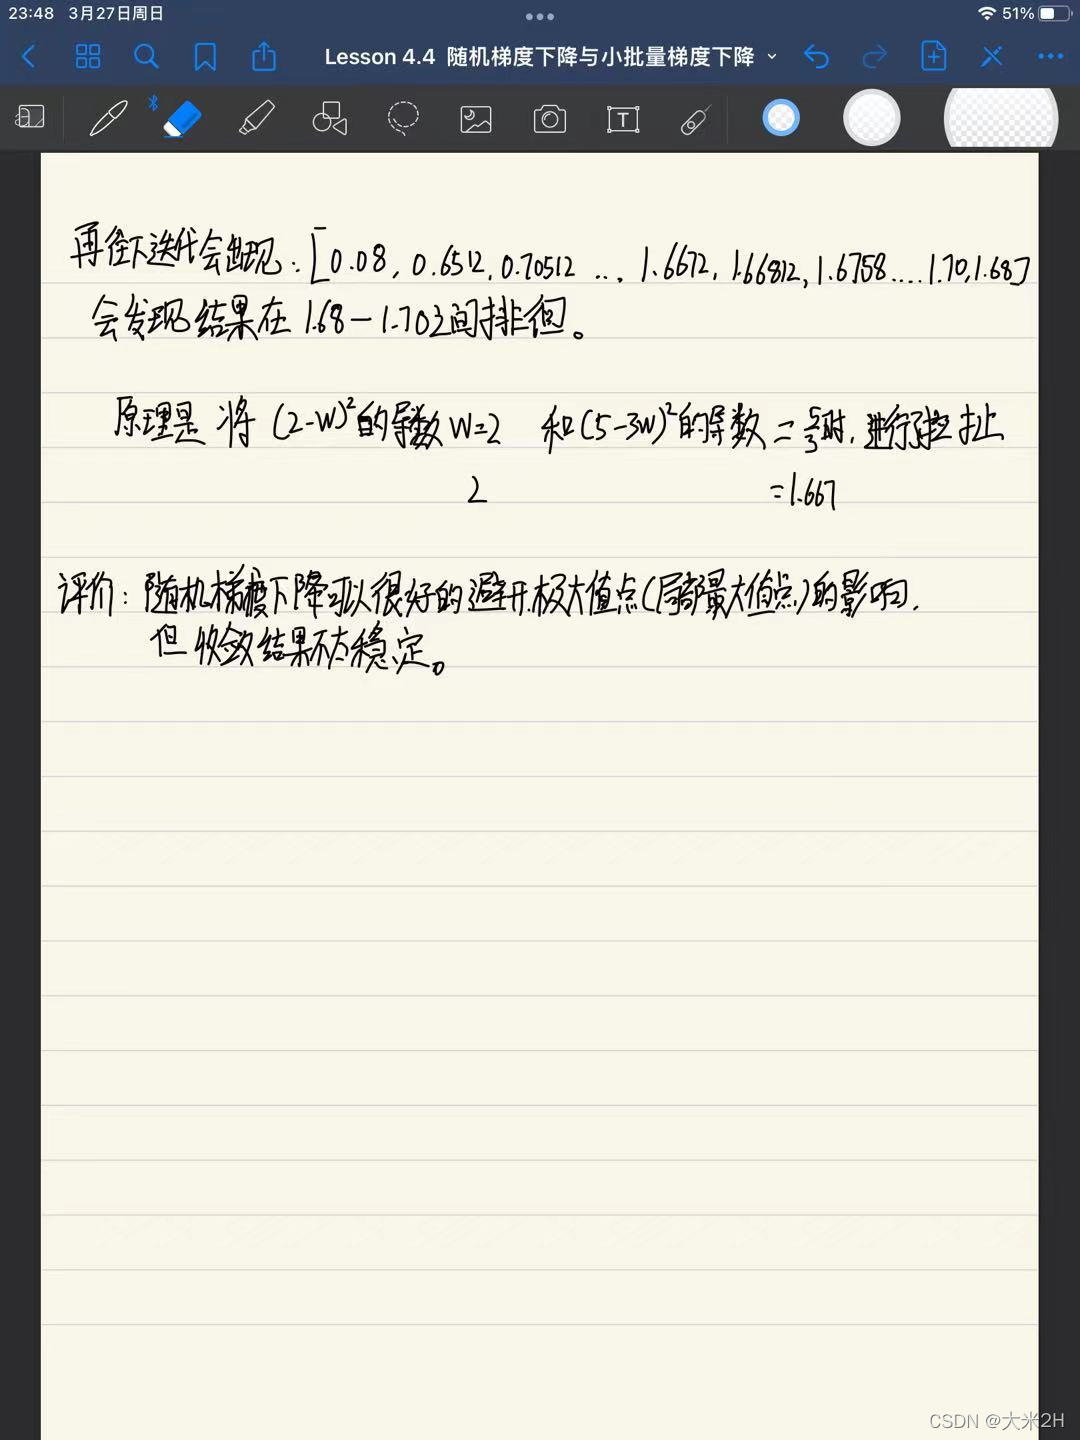 23:48 3月27日周日 51%
Lesson 4.4 随机梯度下降与小批量梯度下降
再往下迭代会出现:[0.08, 0.6512, 0.70512 ..., 1.6672, 1.66812, 1.6758....1.70,1.68]
会发现结果在1.68-1.70之间徘徊。
原理是 将 (2-W)²的导数W=2 和(5-3W)²的导数=5/3时, 进行拉扯
2 =1.667
评价:随机梯度下降可以很好的避开极大值点(局部最大值点)的影响,
但收敛结果不太稳定。
CSDN @大米2H